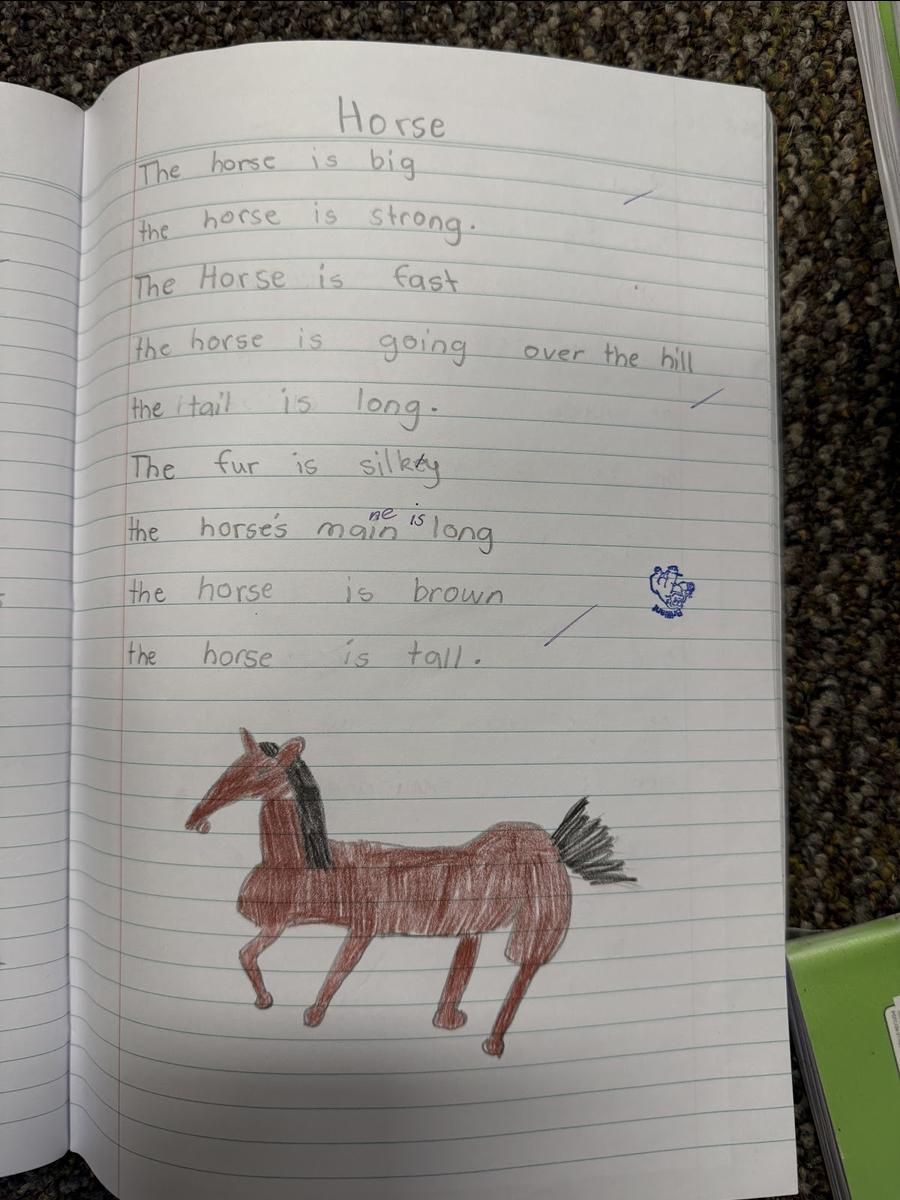 Horse
The horse is big
the horse is strong.
The Horse is fast
the horse is going over the hill
the tail is long.
The fur is silkey
ne is
the horse's main long
the horse is brown
the horse is tall.